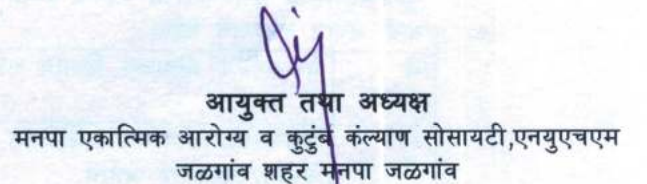 आयुक्त तथा अध्यक्ष
मनपा एकात्मिक आरोग्य व कुटुंब कंल्याण सोसायटी,एनयुएचएम
जळगांव शहर मनपा जळगांव